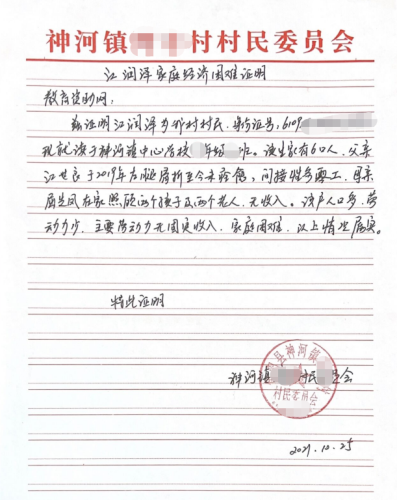 神河镇 村村民委员会
江润泽家庭经济困难证明
教育资助网:
兹证明江润泽为 村村民,身份证号:6109
现就读于神河镇中心学校 年级 班。该生家有6口人,父亲
江 良于2019年 腿 折至今未痊愈,间接性务零工,母亲
在家照顾两个孩子及两个老人,无收入。该户人口多,劳
动力少,主要劳动力无固定收入,家庭困难,以上情况属实。
特此证明
神河镇 村民 会
县神河镇
村民委员会
2021.10.25